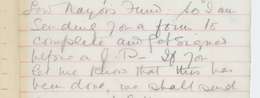 Lord Mayor's Fund. So I am
sending you a form to
complete and get signed
before a J.P. If you
let me know that this has
been done, we shall send